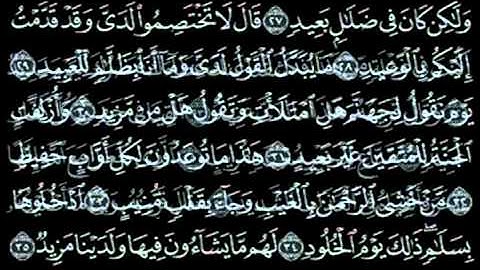 وَلَٰكِن كَانَ فِي ضَلَٰلٍ بَعِيدٍ ٢٧ قَالَ لَا تَخْتَصِمُوا۟ لَدَىَّ وَقَدْ قَدَّمْتُ
إِلَيْكُم بِٱلْوَعِيدِ ٢٨ مَا يُبَدَّلُ ٱلْقَوْلُ لَدَىَّ وَمَآ أَنَا۠ بِظَلَّٰمٍ لِّلْعَبِيدِ ٢٩
يَوْمَ نَقُولُ لِجَهَنَّمَ هَلِ ٱمْتَلَأْتِ وَتَقُولُ هَلْ مِن مَّزِيدٍ ٣٠ وَأُزْلِفَتِ
ٱلْجَنَّةُ لِلْمُتَّقِينَ غَيْرَ بَعِيدٍ ٣١ هَٰذَا مَا تُوعَدُونَ لِكُلِّ أَوَّابٍ حَفِيظٍ
٣٢ مَّنْ خَشِىَ ٱلرَّحْمَٰنَ بِٱلْغَيْبِ وَجَآءَ بِقَلْبٍ مُّنِيبٍ ٣٣ ٱدْخُلُوهَا
بِسَلَٰمٍ ذَٰلِكَ يَوْمُ ٱلْخُلُودِ ٣٤ لَهُم مَّا يَشَآءُونَ فِيهَا وَلَدَيْنَا مَزِيدٌ ٣٥